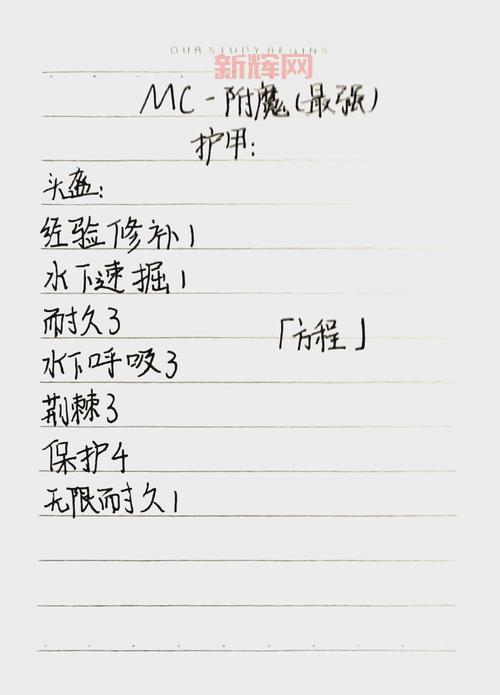 OUR STUDY BEGINS
新辉网
MC-附魔(最强)
护甲:
头盔:
经验修补1
水下速掘1
耐久3
「方程」
水下呼吸3
荆棘3
保护4
无限耐久1